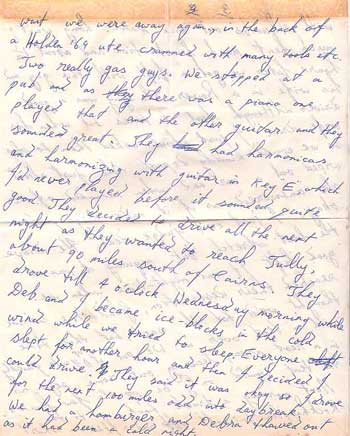 wait we were away again, in the back of
a Holden '69 ute. crammed with many tools etc.
Two really gas guys. We stopped at a
pub and as they there was a piano one
played that and the other guitar and they
sounded great. They had had harmonicas
and harmonizing with guitar in Key E which
I'd never played before it sounded quite
good They decided to drive all the next
night as they wanted to reach Tully,
about 90 miles south of Cairns. They
drove till 4 o'clock Wednesday morning while
Deb and I became ice-blocks in the cold
wind while we tried to sleep. Everyone left
slept for another hour and then I decided I
could drive. They said it was okay so I drove
for the next 100 miles odd into daybreak.
We had a hamburger and Debra & thawed out
as it had been a cold night.